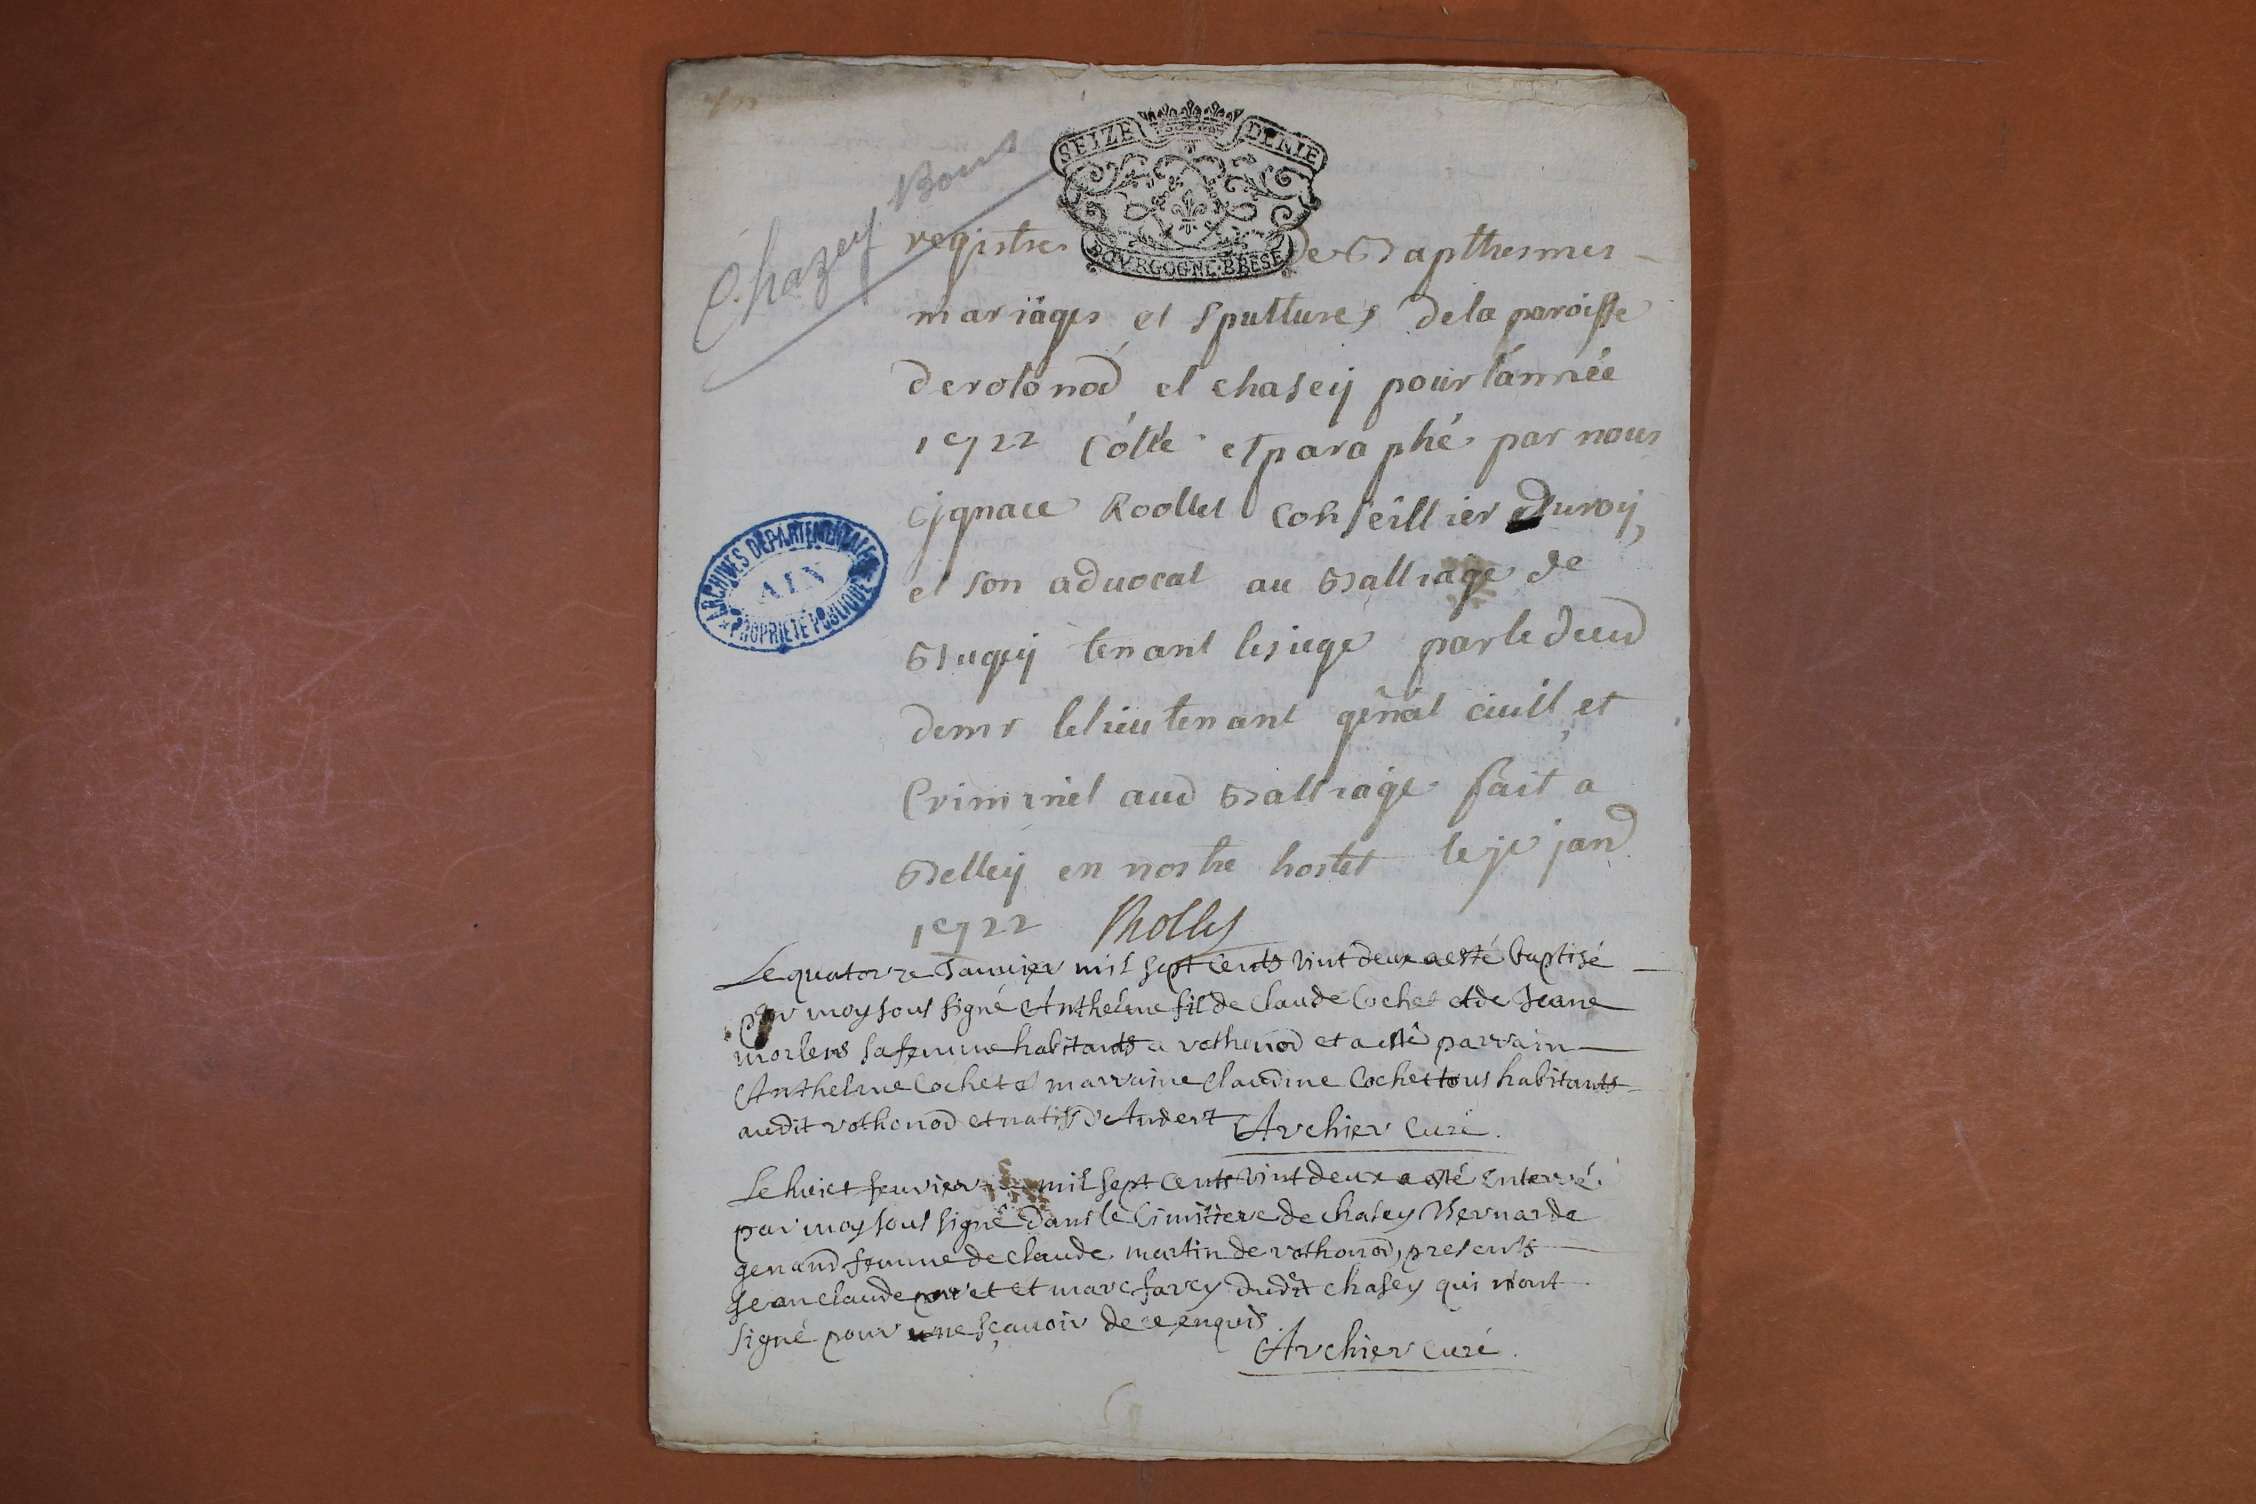 Chazey Bons
SEIZE DENIE
BOVRGOGNE BRESE
registre de Bapthesmes
mariages et sputtures de la paroisse
de rotonod et chasey pour l'année
1722 Cotté et paraphé par nous
ignace Rollet Conseillier du roy
et son aduocat au Balliage de
Bugey tenant le siege par le deced
de mr le lieutenant genal ciuil et
Criminel aud Balliage fait a
Belley en nostre hostel le je jand
1722 Rollet
ARCHIVES DEPARTEMENTALES
AIN
PROPRIETE PUBLIQUE
Le quatorze Januier mil sept cents vint deux a esté baptisé
par moy sous signé Anthelme fil de Claude Cochet et de Jeane
morlens sa femme habitants a rothonod et a esté parrain
Anthelme Cochet et marraine Claudine Cochet tous habitants
audit rothonod et natifs d'Andert Archier Curé.
Le huict feurier mil sept cents vint deux a esté enterré
par moy sous signé dans le Cimitiere de chasey Bernarde
genand femme de Claude martin de rothonod, presents
Jean claude et marc farcy dudit chasey qui n'ont
signé pour ne sçauoir de ce enquis.
Archier curé.